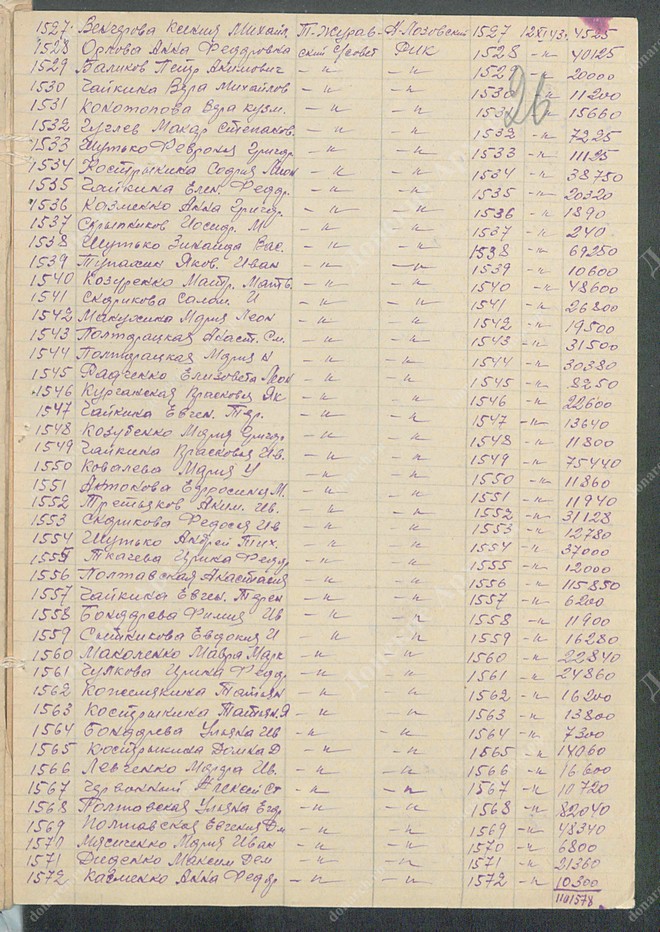 26
1527 Венгерова Ксения Михайл. П-Журав- Н-Лозовский 1527 12 XI 43 4525
1528 Орлова Анна Федоровна ский с/совет РИК 1528 -"- 40125
1529 Баликов Петр Акимович -"- -"- 1529 20000
1530 Чайкина Вера Михайлов -"- -"- 1530 -"- 11200
1531 Вера Кузм. -"- -"- 1531 -"- 15660
1532 Макар Степанов -"- -"- 1532 -"- 7225
1533 Шутько Феврония Григор. -"- -"- 1533 -"- 11125
1534 Кострыкина София Леон -"- -"- 1534 -"- 38750
1535 Чайкина Елен. Федор. -"- -"- 1535 -"- 20320
1536 Козменко Анна Григор. -"- -"- 1536 -"- 1890
1537 Скрыпников Иосиф. М -"- -"- 1537 -"- 240
1538 Шутько Зинаида Вас. -"- -"- 1538 -"- 69250
1539 Яков. Иван -"- -"- 1539 -"- 10600
1540 Матв. -"- -"- 1540 -"- 48600
1541 И -"- -"- 1541 -"- 26800
1542 Мария Леон -"- -"- 1542 -"- 19500
1543 Полторацкая Анаст. Сем. -"- -"- 1543 -"- 31500
1544 Полторацкая Мария Н -"- -"- 1544 -"- 30380
1545 Радченко Елизовета Леон -"- -"- 1545 -"- 8250
1546 Курганская Прасковья Як -"- -"- 1546 -"- 22600
1547 Чайкина Евген. Тер. -"- -"- 1547 -"- 13640
1548 Козубенко Мария Григор -"- -"- 1548 -"- 11800
1549 Чайкина Прасковья Ив. -"- -"- 1549 -"- 75440
1550 Ковалева Мария И -"- -"- 1550 -"- 11860
1551 Антонова Ефросиния М. -"- -"- 1551 -"- 11940
1552 Третьяков Аким. Ив. -"- -"- 1552 -"- 31128
1553 Федосия Ив -"- -"- 1553 -"- 12780
1554 Шутько Андрей Тих. -"- -"- 1554 -"- 37000
1555 Ткачева Ирина Федор -"- -"- 1555 -"- 12000
1556 Полтавская Анастасия -"- -"- 1556 -"- 115850
1557 Чайкина Евген. Терен -"- -"- 1557 -"- 6200
1558 Бондарева Ив -"- -"- 1558 -"- 11900
1559 Сытникова Евдокия И -"- -"- 1559 -"- 16280
1560 Маколенко Мавра Марк -"- -"- 1560 -"- 22840
1561 Чулкова Ирина Федор -"- -"- 1561 -"- 24860
1562 Кожемякина Татьян -"- -"- 1562 -"- 16200
1563 Кострыкина Татьян. Я -"- -"- 1563 -"- 13800
1564 Бондарева Ульяна Ив -"- -"- 1564 -"- 7300
1565 Кострыкина Домна Д -"- -"- 1565 -"- 14060
1566 Левченко Марфа Ив. -"- -"- 1566 -"- 16600
1567 Червонный Алексей Ст -"- -"- 1567 -"- 10720
1568 Полтовская Ульяна Егор -"- -"- 1568 -"- 82040
1569 Полтавская Евгения Дм -"- -"- 1569 -"- 48340
1570 Мария Иван -"- -"- 1570 -"- 6800
1571 Диденко Максим Дем -"- -"- 1571 -"- 21360
1572 Казменко Анна Федор -"- -"- 1572 -"- 10300
1101578